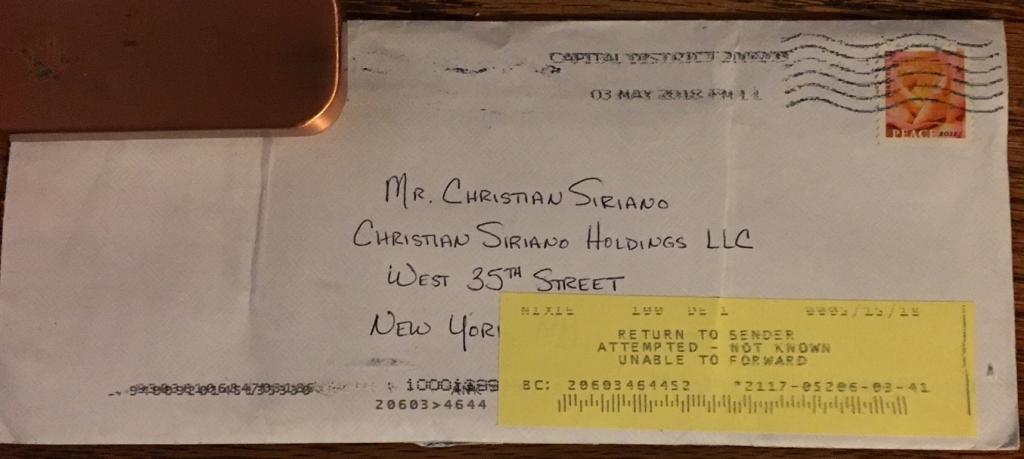 CAPITAL DISTRICT
03 MAY 2018 PM 1 L
PEACE
Mr. Christian Siriano
Christian Siriano Holdings LLC
West 35th Street
New York
NIXIE 100 DE 1
RETURN TO SENDER
ATTEMPTED - NOT KNOWN
UNABLE TO FORWARD
BC: 20603464452 *2117-05206-03-41
20603>4644